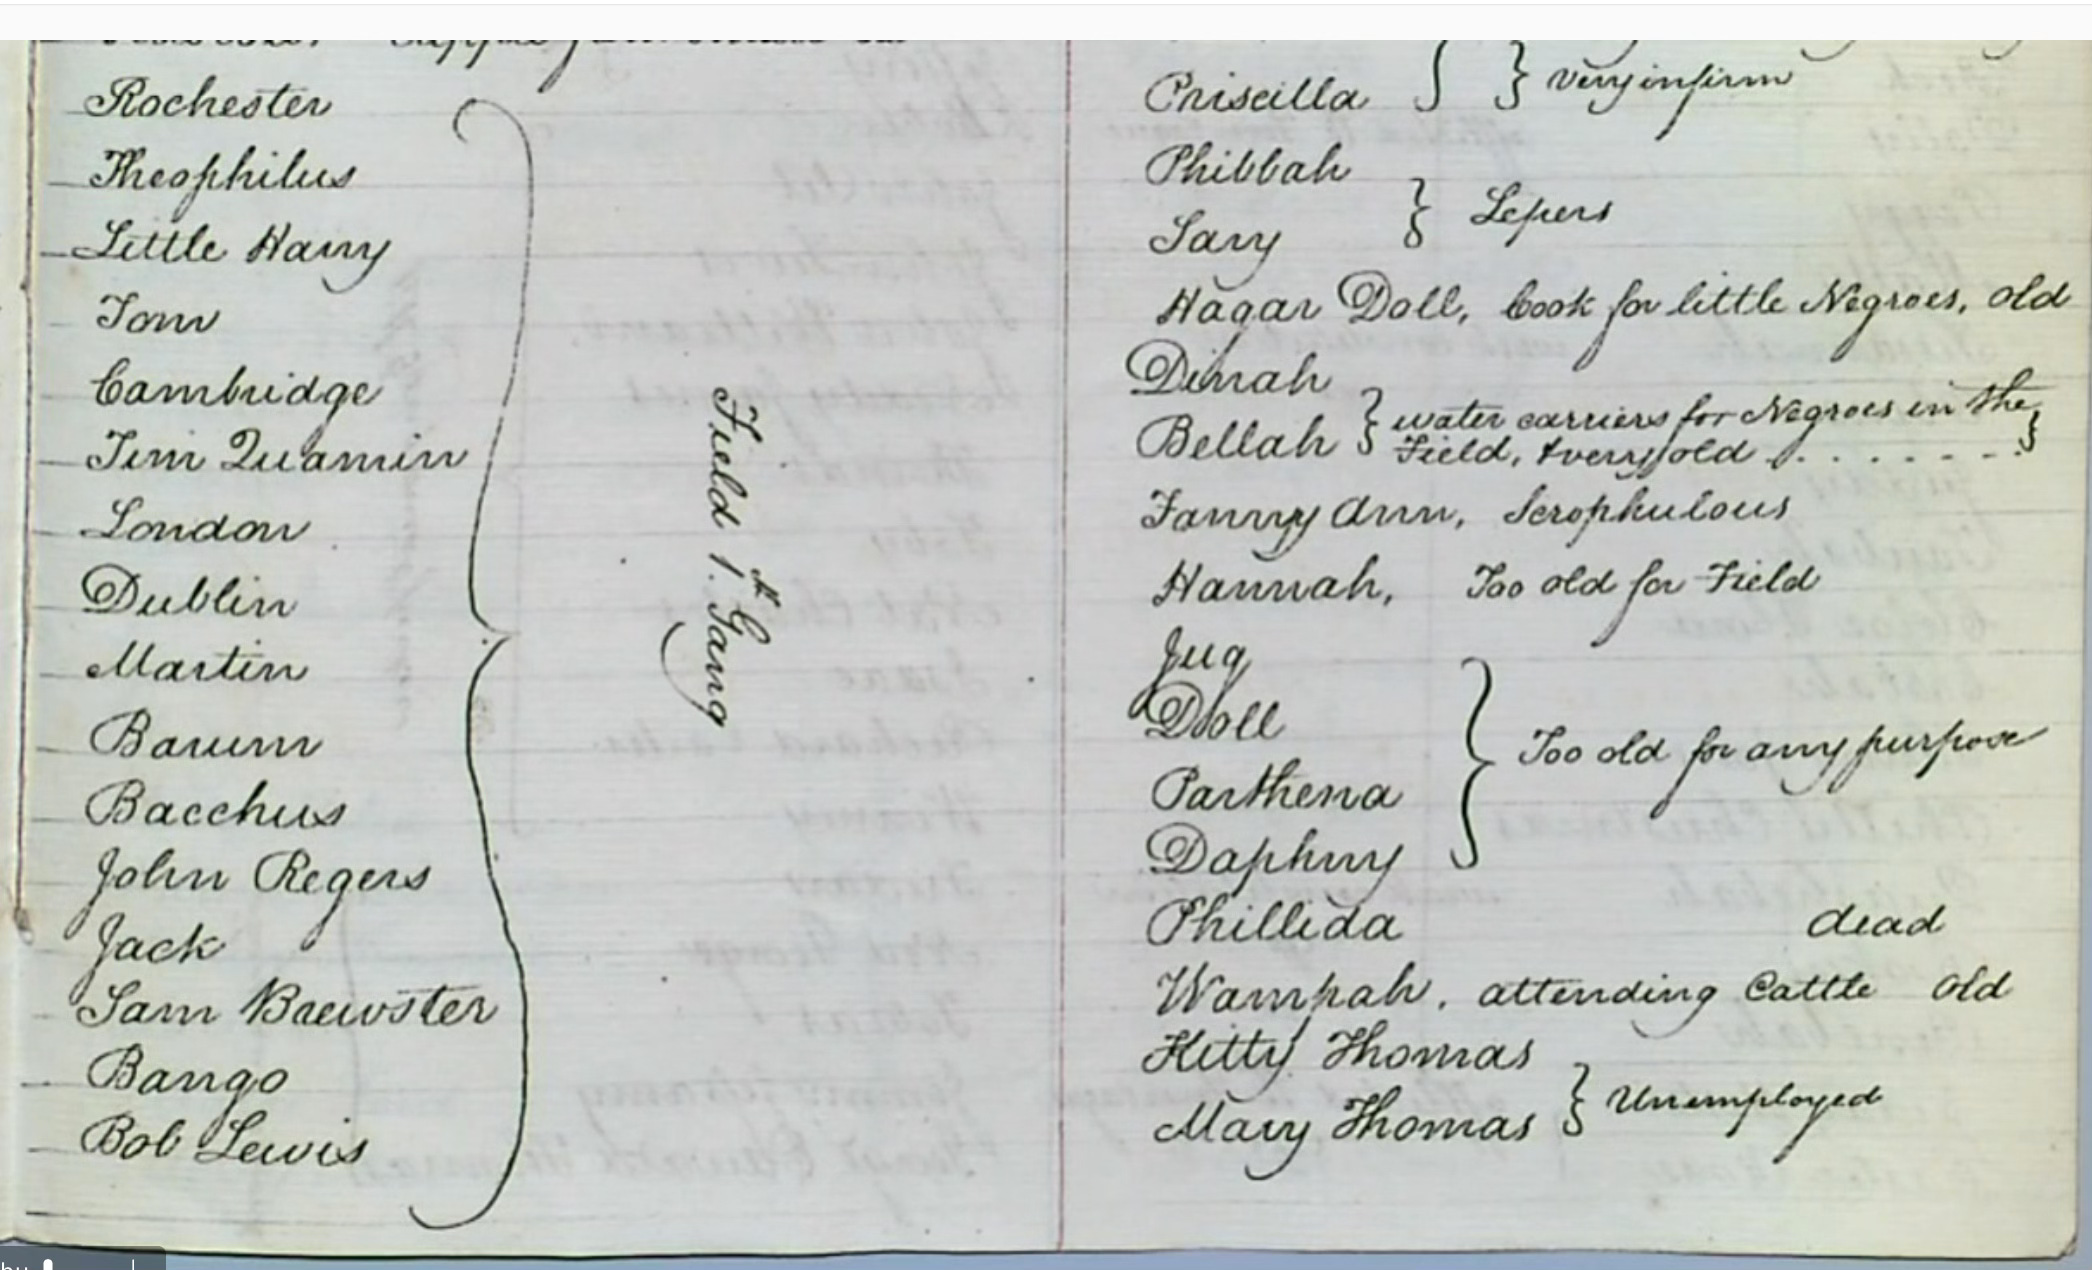 Rochester
Theophilus
Little Harry
Tom
Cambridge
Jim Quamin
London
Dublin
Martin
Barum
Bacchus
John Rogers
Jack
Sam Brewster
Bango
Bob Lewis
Field 1.st Gang
Priscilla } } very infirm
Phibbah
Sary } Lepers
Hagar Doll, Cook for little Negroes, old
Dinah
Bellah } water carriers for Negroes in the
Field, & very old . . . . . . . }
Fanny Ann, Scrophulous
Hannah, Too old for Field
Jug
Doll
Parthena } Too old for any purpose
Daphny
Phillida dead
Wampah. attending Cattle old
Kitty Thomas
Mary Thomas } Unemployed